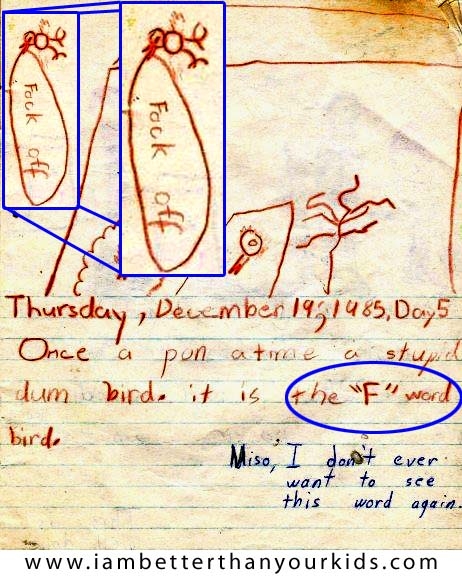 Fock off
Fock off
Thursday, December 19, 1985, Day 5
Once a pon a time a stupid
dum bird. it is the "F" word
bird.
Miso, I don't ever
want to see
this word again.
www.iambetterthanyourkids.com